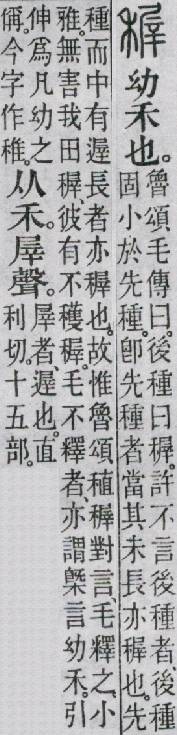 稺 幼禾也。
魯頌毛傳曰。後種曰稺。許不言後種者、後種
固小於先種。卽先種者當其未長亦稺也。先
種而中有遟長者亦稺也。故惟魯頌稙稺對言、毛釋之。小
雅無害我田稺、彼有不穫稺。毛不釋者、亦謂槩言幼禾。引
伸爲凡幼之
偁。今字作稚。
从禾。屖聲。
屖者、遟也。直
利切。十五部。